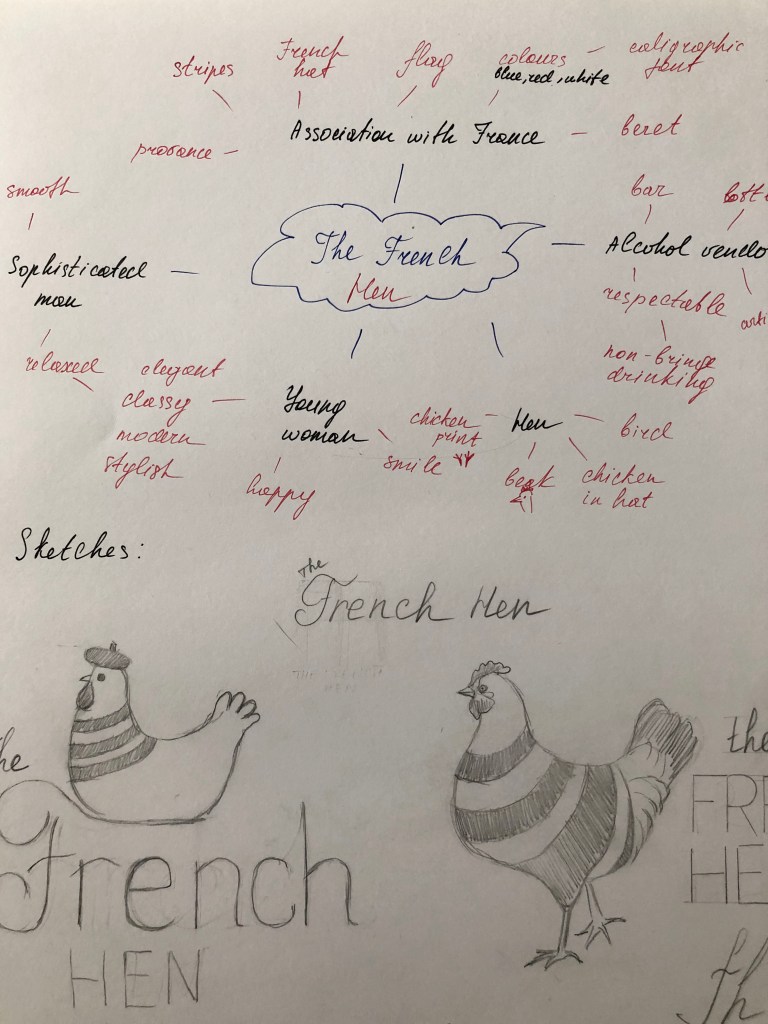 stripes
French
hat
flag
colours – caligraphic
font
blue, red, white
Association with France – beret
provance –
smooth
bar
The French
Hen
Sophisticated
man
Alcohol vendo
respectable
non-bringe
drinking
relaxed
elegant
classy
modern
stylish
Young
woman
happy
smile
chicken
print
Hen
bird
beak
chicken
in hat
Sketches:
The
French Hen
he
French
HEN
the
FR
HE